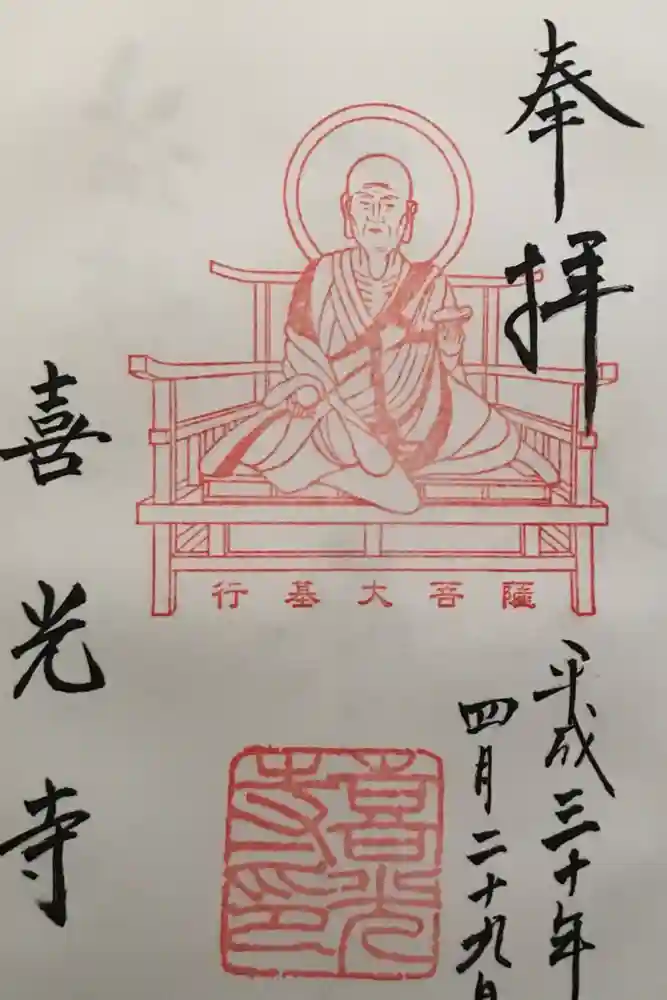 奉拝
行基大菩薩
平成三十年
四月二十九日
喜光寺
喜光寺印